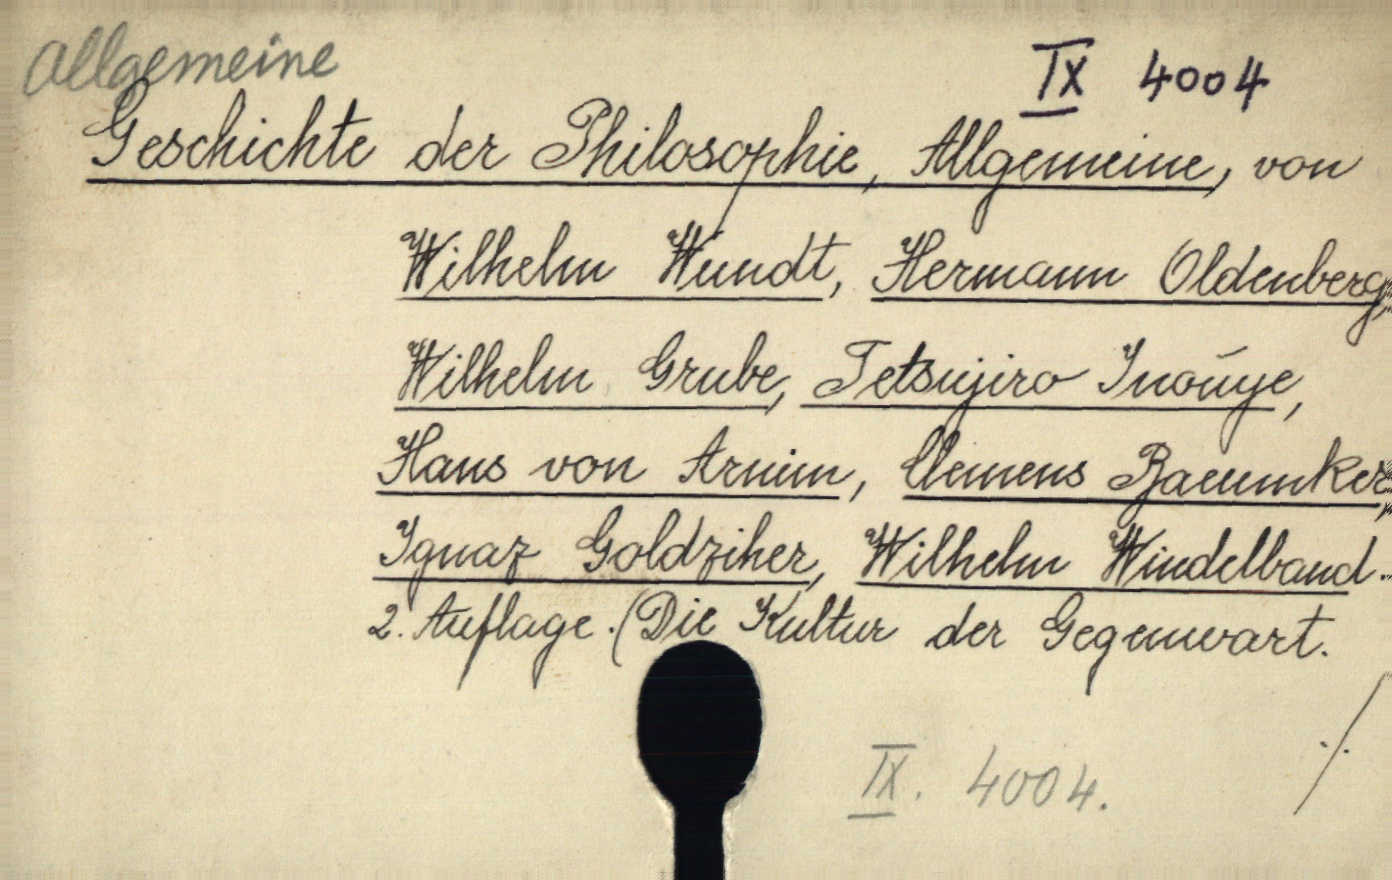 Allgemeine
IX 4004
Geschichte der Philosophie, Allgemeine, von
Wilhelm Wundt, Hermann Oldenberg,
Wilhelm Grube, Tetsujiro Inoūye,
Hans von Arnim, Clemens Baeumker,
Ignaz Goldziher, Wilhelm Windelband.
2. Auflage. (Die Kultur der Gegenwart.
./.
IX. 4004.